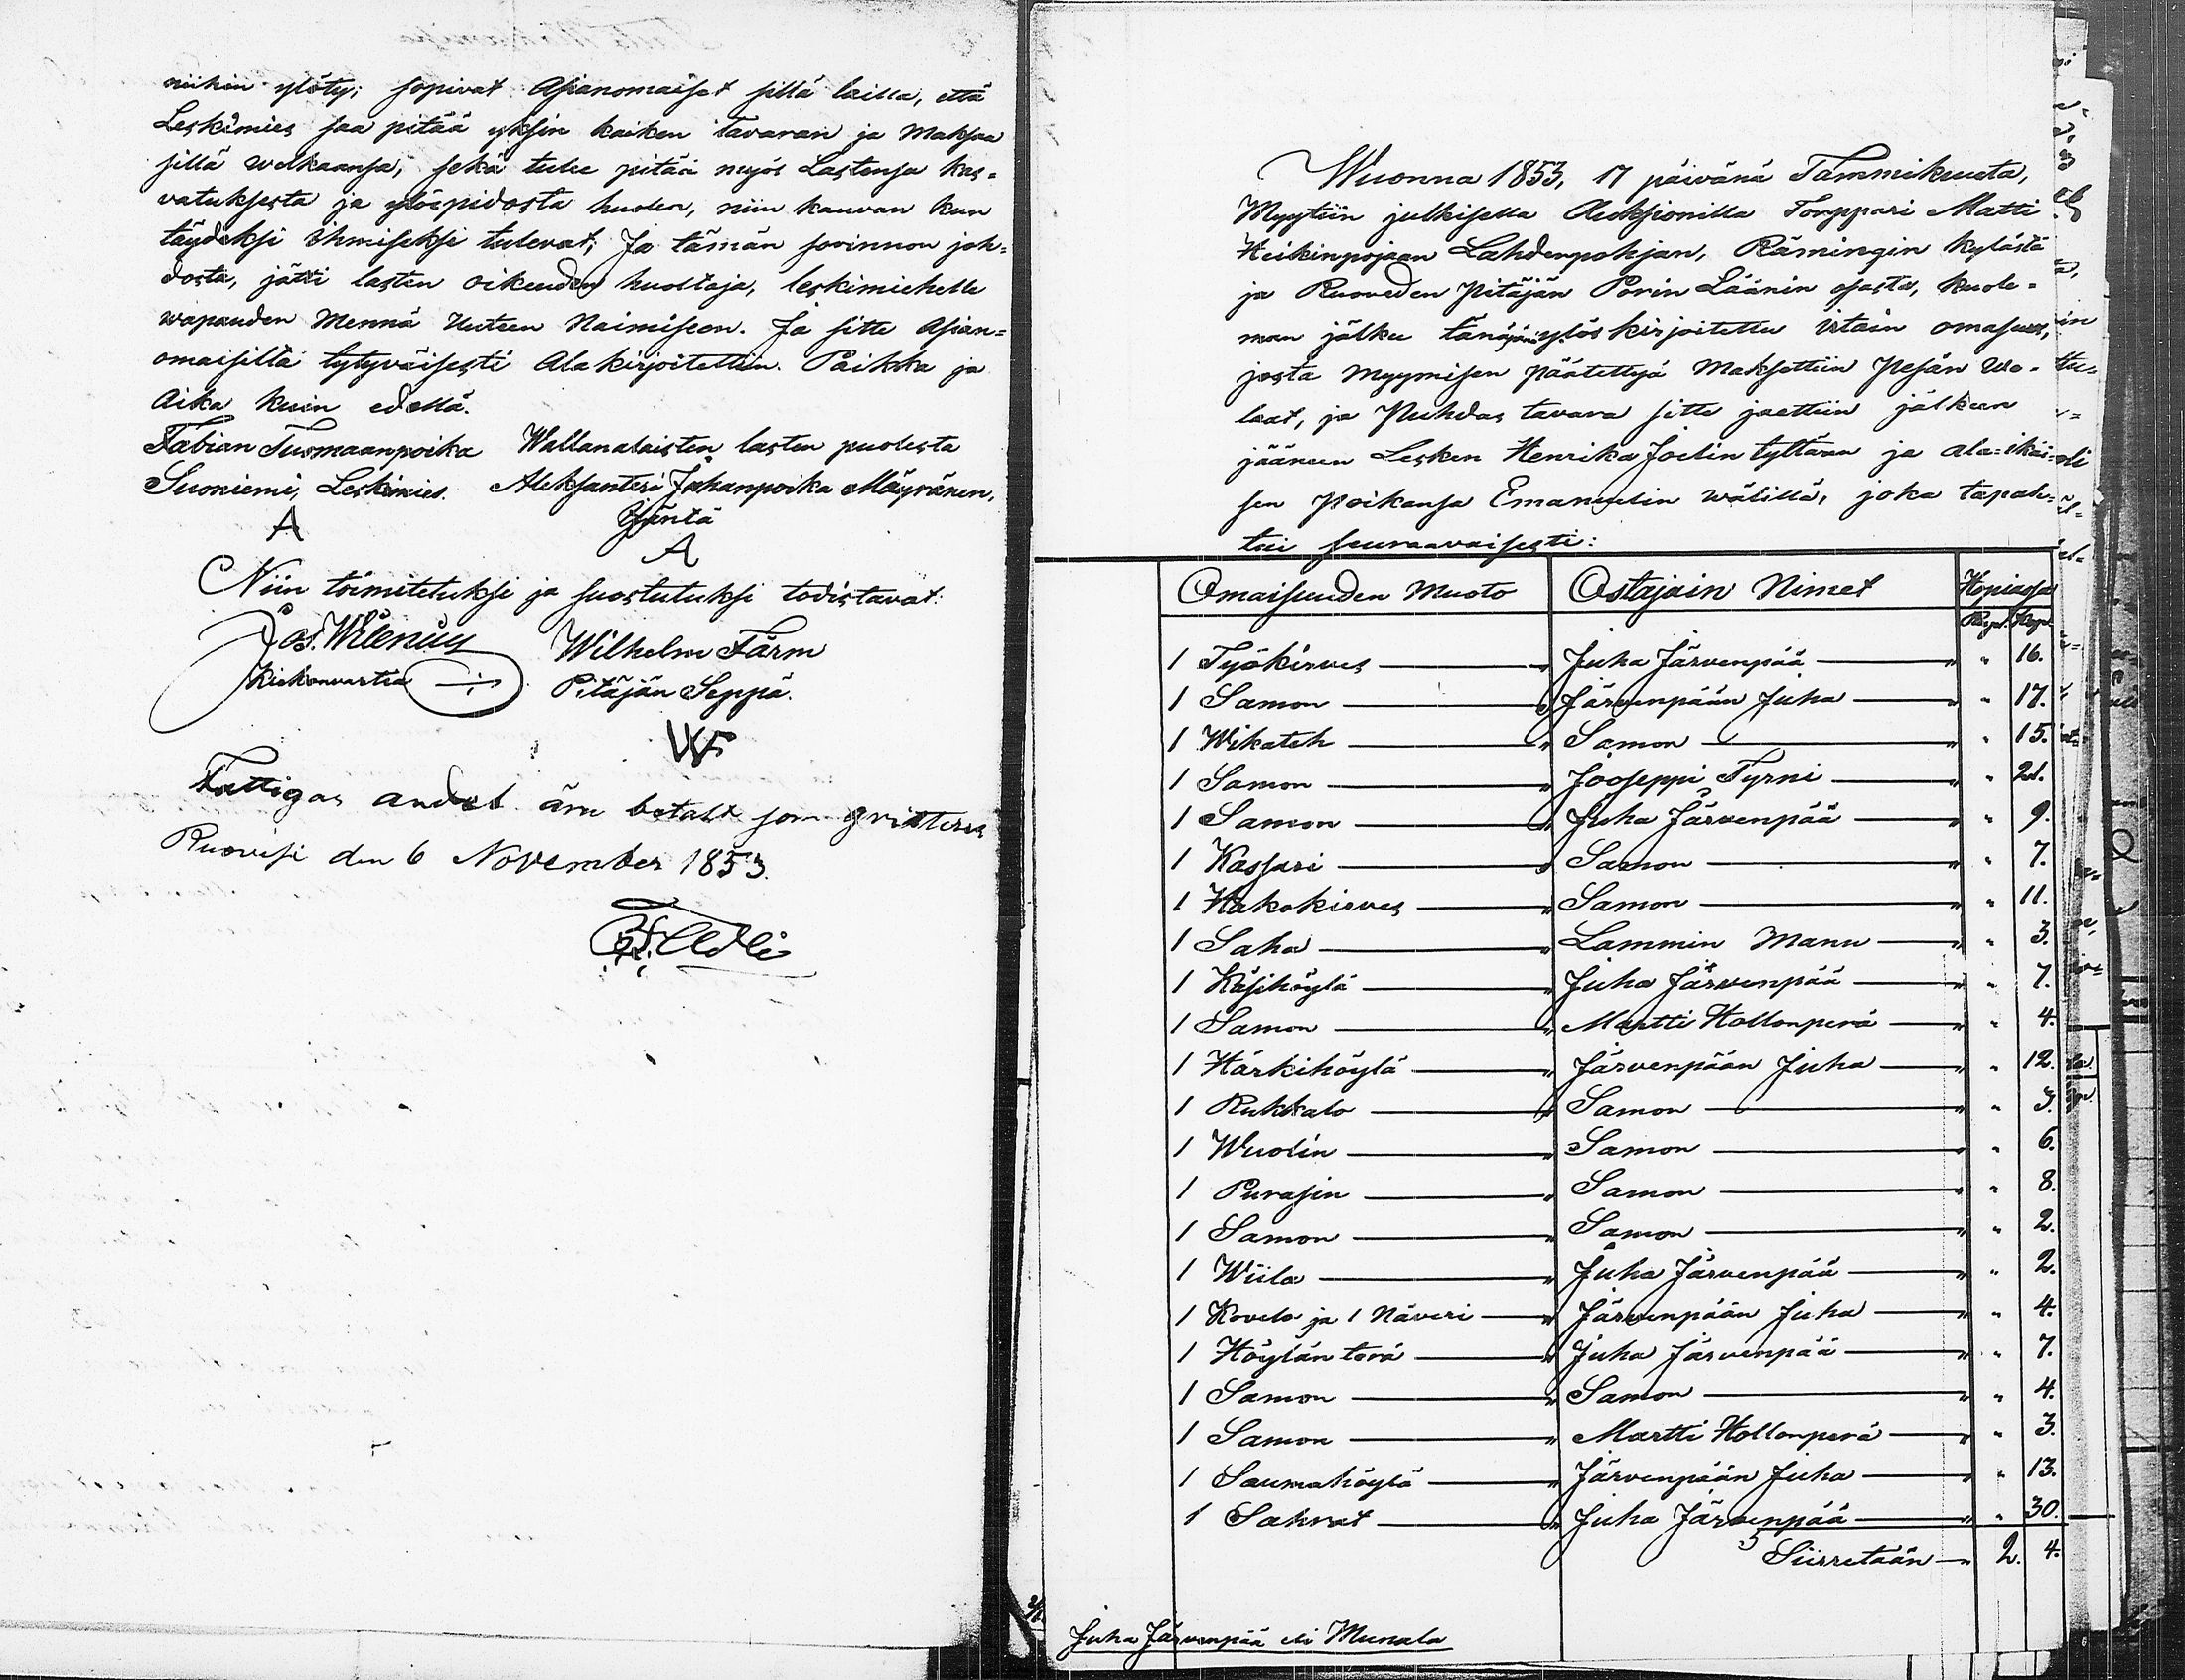 niihin ylöty; sopivat Asianomaiset sillä lailla, että
Leskimies saa pitää yksin kaiken tavaran ja Maksaa
sillä welkaansa; sekä tulee pitää myös Lastensa kas=
vatuksesta ja ylöspidosta huolen, niin kauvan kun
täydeksi ihmiseksi tulevat; Ja tämän sovinnon joh=
dosta, jätti lasten oikeuden huoltaja, leskimiehelle
wapauden Mennä Uuteen Naimiseen. Ja sitte Asian=
omaisilta tytyväisesti Alakirjoitettiin. Paikka ja
Aika kuin edellä.
Fabian Tuomaanpoika Wallanalaisten lasten puolesta
Suoniemi, Leskimies. Aleksanteri Juhanpoika Mäyränen,
A
A
Niin toimitetuksi ja suostutuksi todistavat:
Jos. Wilenius Wilhelm Färm
Kirkonvartia Pitäjän Seppä.
WF
Fattigas andel är betalt som qvitteras
Ruovesi den 6 November 1853.
Wuonna 1853, 17 päivänä Tammikuuta,
Myytiin julkisella Auksionilla Torppari Matti
Heikinpojan Lahdenpohjan, Rämingin kylästä
ja Ruoveden Pitäjän Porin Läänin osasta, kuole=
man jälkeen ylöskirjoitettu irtain omasuus,
josta Myymisen päätettyä Maksettiin Pesän We=
lat, ja Puhdas tavara sitte jaettiin jälkeen
jääneen Lesken Henrika Joelin tyttären ja ala=ikäi=
sen Poikansa Emanuelin wälillä, joka tapah=
tui seuraavaisesti:
Omaisuuden Muoto Ostajain Nimet Hopiassa
Rupl. Kop.
1 Työkirves — " Juha Järvenpää — " " 16.
1 Samon — " Järvenpään Juha — " " 17.
1 Wikateh — " Samon — " " 15.
1 Samon — " Jooseppi Tyrni — " " 21.
1 Samon — " Juha Järvenpää — " " 9.
1 Kassari — " Samon — " " 7.
1 Hakokirves — " Samon — " " 11.
1 Saha — " Lammin Manu — " " 3.
1 Käsihöylä — " Juha Järvenpää — " " 7.
1 Samon — " Martti Hollonperä — " " 4.
1 Härkihöylä — " Järvenpään Juha — " " 12.
1 Rukkalo — " Samon — " " 3.
1 Wuolin — " Samon — " " 6.
1 Purasin — " Samon — " " 8.
1 Samon — " Samon — " " 2.
1 Wiila — " Juha Järvenpää — " " 2.
1 Kovelo ja 1 Näveri — " Järvenpään Juha — " " 4.
1 Höylän terä — " Juha Järvenpää — " " 7.
1 Samon — " Samon — " " 4.
1 Samon — " Martti Hollonperä — " " 3.
1 Saumahöylä — " Järvenpään Juha — " " 13.
1 Sahrat — " Juha Järvenpää — " " 30.
Siirretään — " 2. 4.
Juha Järvenpää eli Munala